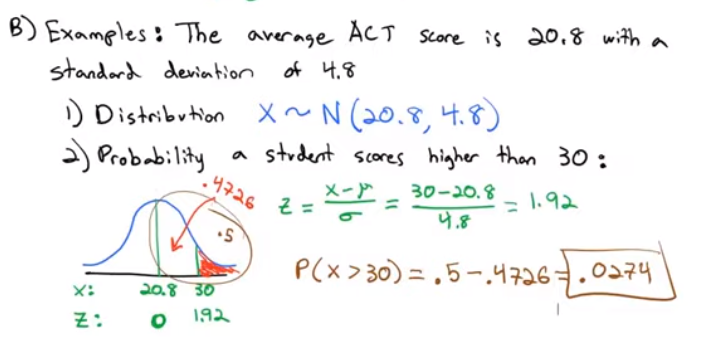 B) Examples: The average ACT score is 20.8 with a
standard deviation of 4.8
1) Distribution X ~ N(20.8, 4.8)
2) Probability a student scores higher than 30:
.4726
z = (x-μ)/σ = (30-20.8)/4.8 = 1.92
.5
P(x>30) = .5-.4726 = .0274
X: 20.8 30
Z: 0 1.92